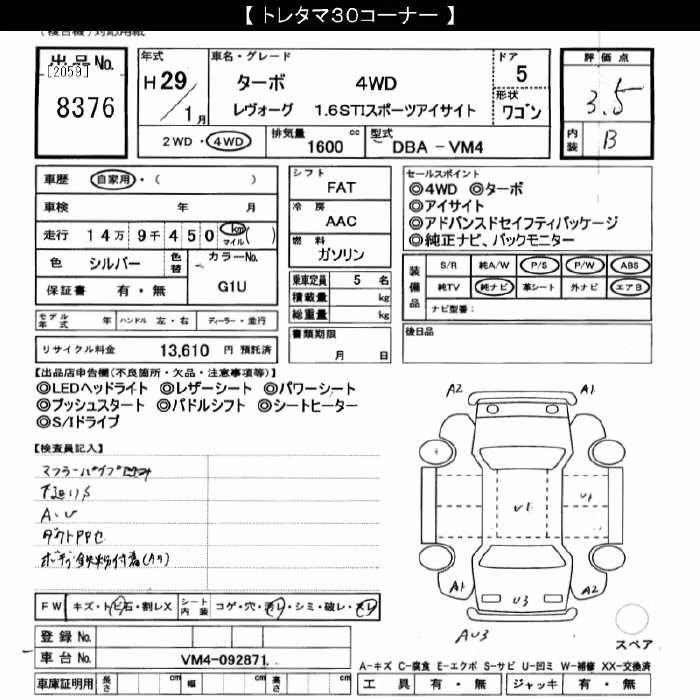 【 トレタマ30コーナー 】
(複合機)対応用紙
出品No.
[2059]
8376
年式
H29/1月
車名・グレード
ターボ 4WD
レヴォーグ 1.6STIスポーツアイサイト
ドア
5
形状
ワゴン
評価点
3.5
内装
B
2WD・4WD
排気量 1600 cc
型式 DBA - VM4
車歴 自家用・( )
車検 年 月
走行 14万9千450 km マイル( )
色 シルバー 色替
カラーNo.
G1U
保証書 有・無
モデル年式 年 ハンドル 左・右 ディーラー・並行
リサイクル料金 13,610 円 預託済
シフト
FAT
冷房
AAC
燃料
ガソリン
乗車定員 5 名
積載量 kg
総重量 kg
書類期限
月 日
セールスポイント
◎4WD ◎ターボ
◎アイサイト
◎アドバンスドセイフティパッケージ
◎純正ナビ、バックモニター
装備品
S/R 純A/W P/S P/W ABS
純TV 純ナビ 革シート 外ナビ エアB
ナビ型番:
後日品
【出品店申告欄(不良箇所・欠品・注意事項等)】
◎LEDヘッドライト ◎レザーシート ◎パワーシート
◎プッシュスタート ◎パドルシフト ◎シートヒーター
◎S/Iドライブ
【検査員記入】
マフラーパイプ凹み
下廻りS
A・U
ダクトPPセ
ボディ鉄粉付着(A9)
A2 A1
U1 U1
A1 A2
U3
AU3
スペア
FW キズ・トビ石・割レX
シート内装 コゲ・穴・汚レ・シミ・破レ・スレ
登録No.
車台No. VM4-092871
車庫証明用 長さ cm 幅 cm 高さ cm
A-キズ C-腐食 E-エクボ S-サビ U-凹ミ W-補修 XX-交換済
工具 有・無 ジャッキ 有・無